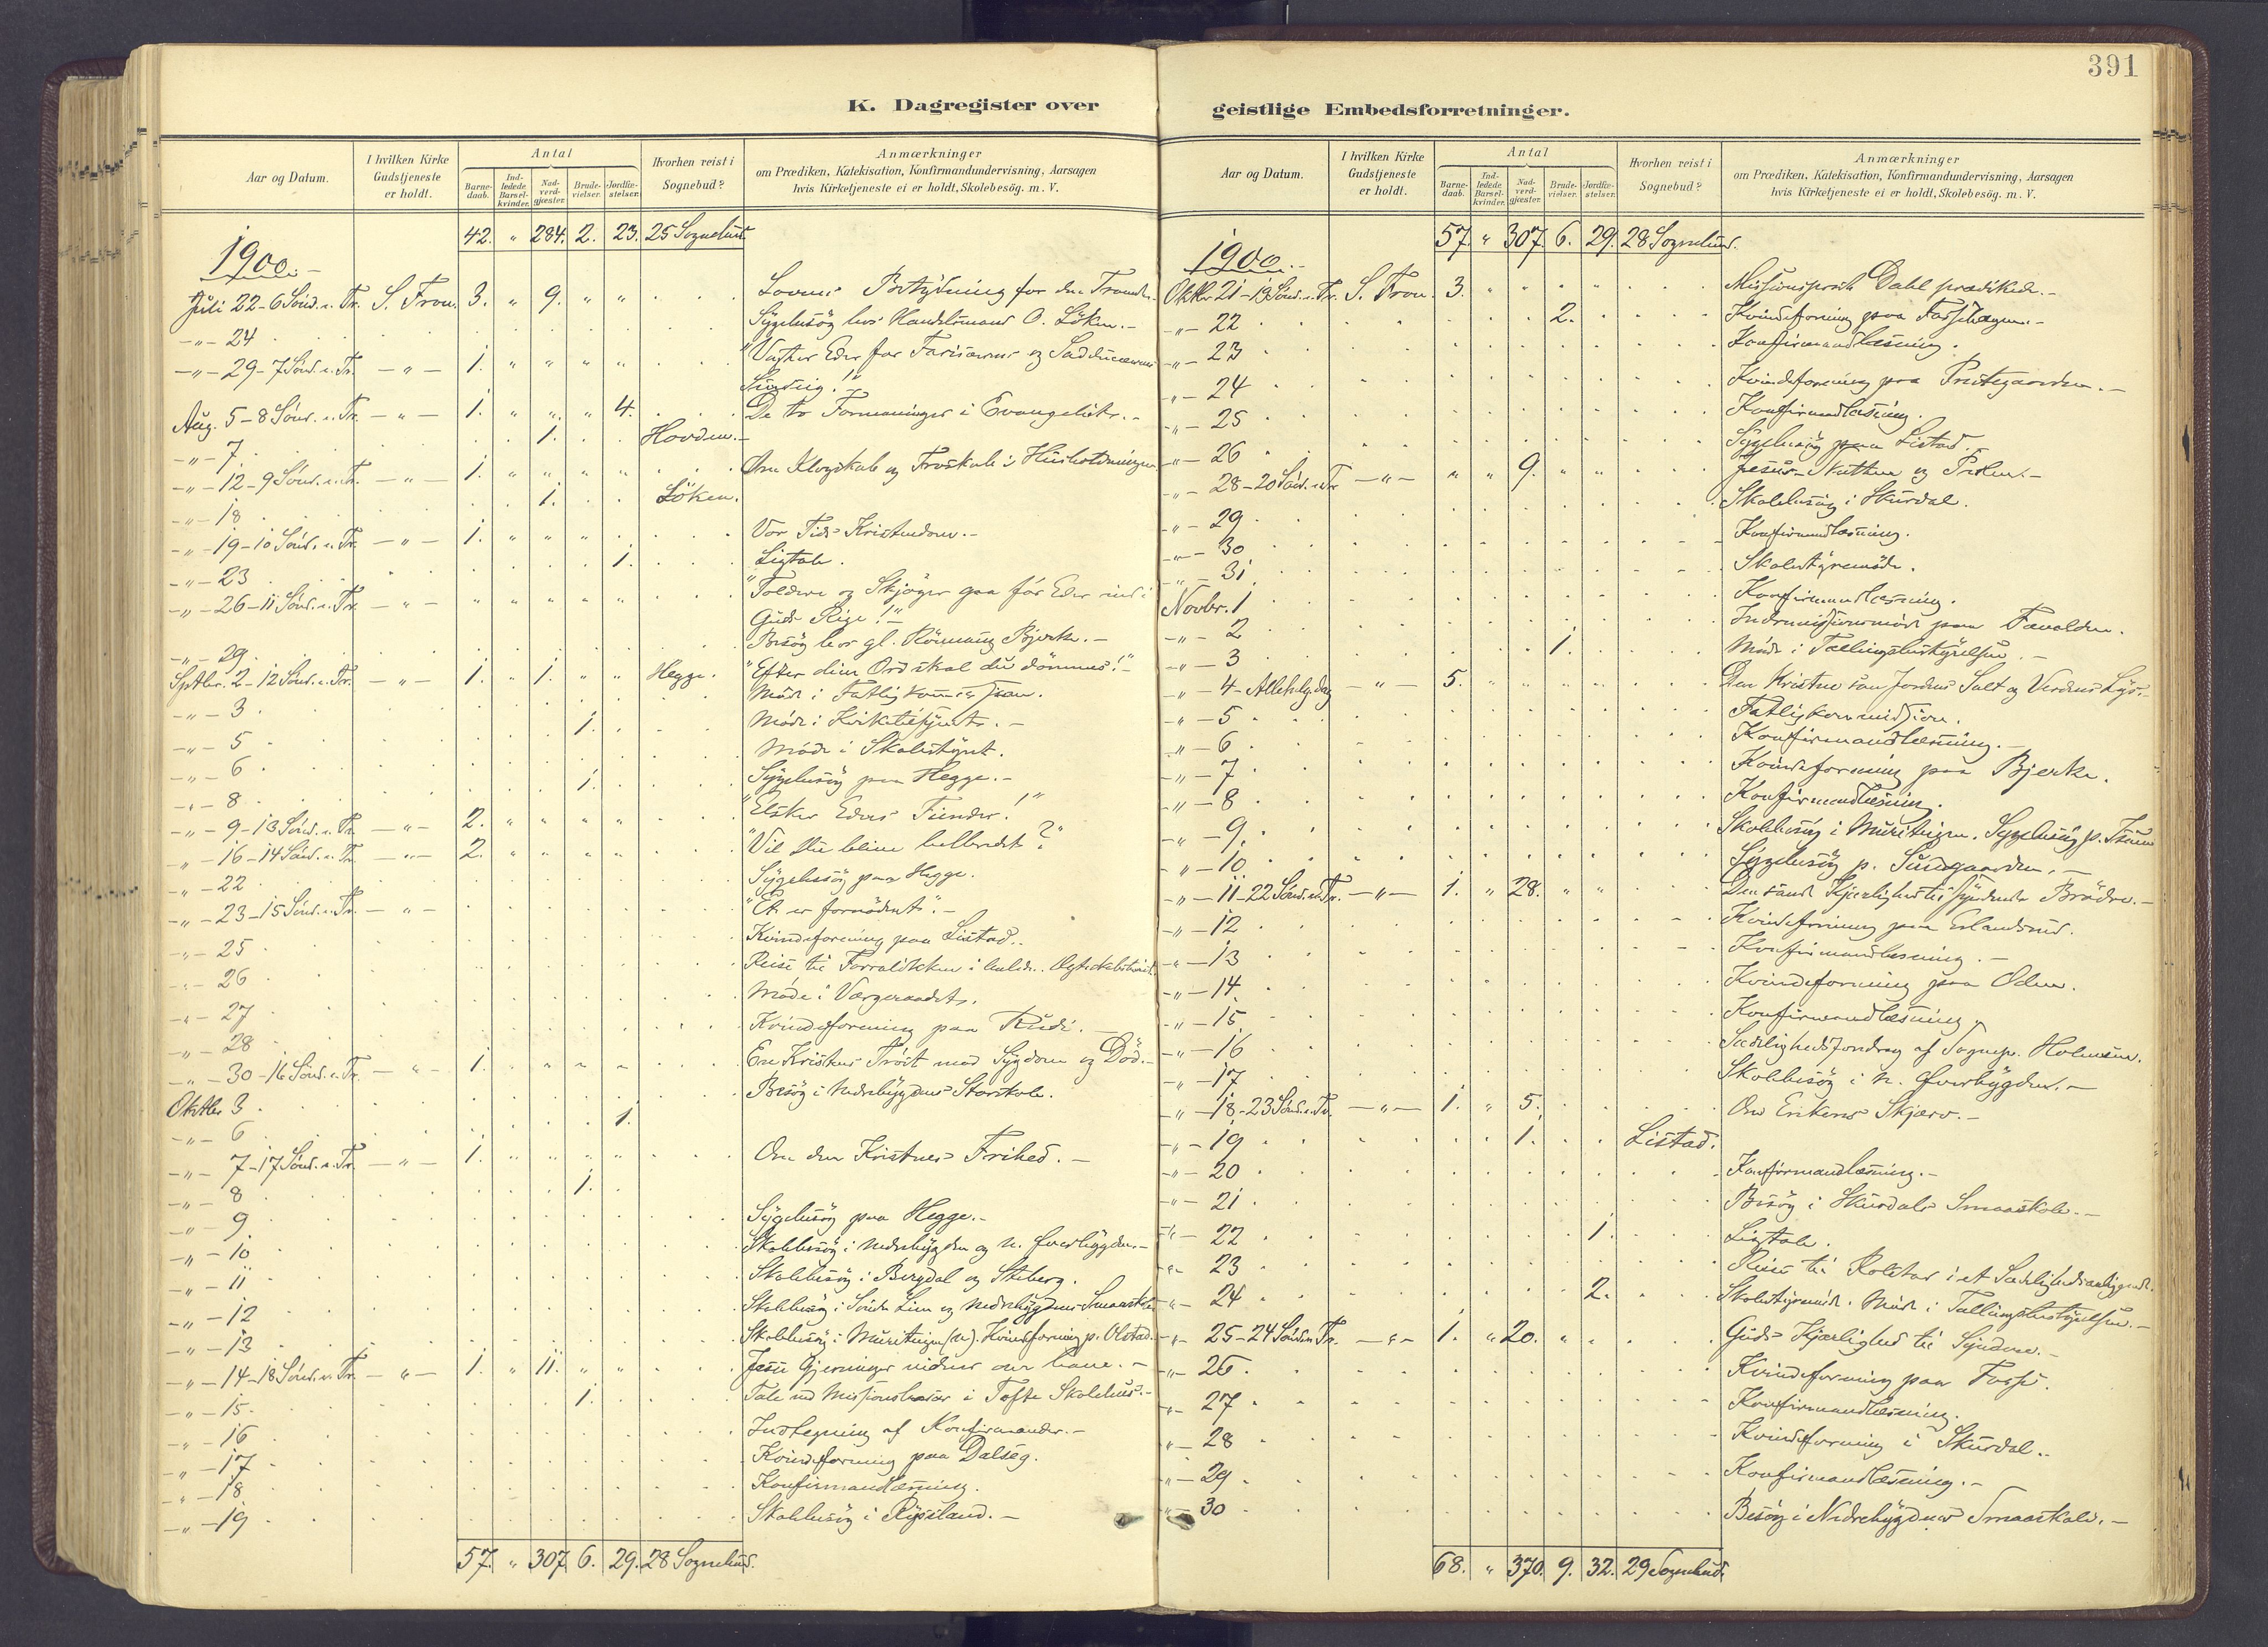 391
K. Dagregister over geistlige Embedsforretninger.
Aar og Datum. I hvilken Kirke Gudstjeneste er holdt. Antal Barnedaab. Indledede Barselkvinder. Nadverdgjæster. Brudevielser. Jordfæstelser. Hvorhen reist i Sognebud? Anmærkninger om Prædiken, Katekisation, Konfirmandundervisning, Aarsagen hvis Kirketjeneste ei er holdt, Skolebesög. m. V.
42. " 284. 2. 23. 25 Sognebud.
1900.-
Juli 22-6 Sönd. e. Tr. S. Fron. 3. " 9. " " Lovens Betydning for den Troende.
-"- 24 Sygebesög hos Handelsmand O. Löken.-
-"- 29-7 Sönd. e. Tr. -"- 1. " " " " "Vogter Eder for Farisæernes og Sadducæernes
Surdeig!"
Aug. 5-8 Sönd. e. Tr. -"- 1. " " " 4. De to Formaninger i Evangeliet.-
-"- 7 1. Hovden.-
-"- 12-9 Sönd. e. Tr. -"- 1. " " " " Om Klogskab og Troskab i Husholdningen
-"- 18 1. Löken.
-"- 19-10 Sönd. e. Tr. -"- 1. " " " Vor Tids Kristendom.-
-"- 23 1. Ligtale.
-"- 26-11 Sönd. e. Tr. -"- " " " " " "Toldere og Skjöger gaa för Eder ind i
Guds Rige!"-
-"- 29. Besög hos gl. Rönnaug Bjerke.-
Septbr. 2-12 Sönd. e. Tr. -"- 1. " 1. " " Hegge. "Efter dine Ord skal du dömmes!"-
-"- 3 Möde i Fatligkommissjonen.
-"- 5 1. Möde i Kirketilsynet.-
-"- 6 Möde i Skolestyret.
-"- 8 1. Sygebesög paa Hegge.-
-"- 9-13 Sönd. e. Tr. -"- 2. " " " " "Elsker Eders Fiender!"
-"- 16-14 Sönd. e. Tr. -"- 2. " " " " "Vil Du blive helbredet?"
-"- 22 Sygebesög paa Hegge.
-"- 23-15 Sönd. e. Tr. -"- "Et er fornödent".-
-"- 25 Kvindeforening paa Listad.
-"- 26 Reise til
-"- 27 Möde i Værgeraadet.
-"- 28 Kvindeforening paa Rudi.-
-"- 30-16 Sönd. e. Tr. -"- 1. " " " " En Kristens Tröst mod Sygdom og Död.-
Oktbr. 3 Besög i Nedrebygdens Storskole.
-"- 6 1.
-"- 7-17 Sönd. e. Tr. -"- 1. " " " " Om den Kristnes Frihed.-
-"- 8 1.
-"- 9 Sygebesög paa Hegge.-
-"- 10 Skolebesög i Nedrebygden og n. Överbygden.-
-"- 11 Skolebesög i Bergdal og Steberg.
-"- 12 Skolebesög i Söndre Lien og Nedrebygdens Smaaskole
-"- 13 Skolebesög i Muriteigen (n). Kvindeforening p. Olstad.
-"- 14-18 Sönd. e. Tr. -"- 1. " 11. " " Jesu Gjerninger vidner om ham.-
-"- 15- 1. Tale ved Missionsbasar i Tofte Skolehus.-
-"- 16 Indtegning af Konfirmander.-
-"- 17 Kvindeforening paa Dalseg.
-"- 18 Konfirmandlæsning.
-"- 19 Skolebesög i Rypsland.-
57. " 307. 6. 29. 28 Sognebud.
Aar og Datum. I hvilken Kirke Gudstjeneste er holdt. Antal Barnedaab. Indledede Barselkvinder. Nadverdgjæster. Brudevielser. Jordfæstelser. Hvorhen reist i Sognebud? Anmærkninger om Prædiken, Katekisation, Konfirmandundervisning, Aarsagen hvis Kirketjeneste ei er holdt, Skolebesög. m. V.
57. " 307. 6. 29. 28 Sognebud.
1900.-
Oktbr. 21-19 Sönd. e. Tr. S. Fron. 3. " " " " Missionsprest Dahl prædikede.-
-"- 22 2. Kvindeforening paa
-"- 23 Konfirmandlæsning.
-"- 24 Kvindeforening paa Prestegaarden.-
-"- 25 Konfirmandlæsning.
-"- 26 Sygebesög paa Listad.
-"- 28-20 Sönd. e. Tr. -"- " " 9. " " Jesus- Skatten og Perlen.-
-"- 29 Skolebesög i Skurdal.
-"- 30 Konfirmandlæsning.
-"- 31 Skolestyremöde.
Novbr. 1 Konfirmandlæsning.
-"- 2 Indremissionsmöde paa
-"- 3 1. Möde i Tællingsbestyrelsen.-
-"- 4- Allehelg.dag -"- 5. " " " Den Kristne som Jordens Salt og Verdens Lys.-
-"- 5 Fatligkommission.
-"- 6 Konfirmandlæsning.-
-"- 7 Kvindeforening paa Bjerke.
-"- 8 Konfirmandlæsning.
-"- 9. Skolebesög i Muriteigen. Sygebesög p.
-"- 10 Sygebesög p. Sundgaarden.-
-"- 11-22 Sönd. e. Tr. -"- 1. " 28. " " Den sande Kjærlighed til syndende Brödre.-
-"- 12 Kvindeforening paa Erlandsrud.
-"- 13 Konfirmandlæsning.-
-"- 14 Kvindeforening paa Oden.
-"- 15 Konfirmandlæsning.
-"- 16 Sædelighedsforedrag af Sognepr.
-"- 17 Skolebesög i n. Överbygden.-
-"- 18-23 Sönd. e. Tr. -"- 1. " 5. Om Enkens Skjærv.-
-"- 19 1. Listad.
-"- 20 Konfirmandlæsning.-
-"- 21 Besög i Skurdals Smaaskole.-
-"- 22 1. Ligtale.
-"- 23 Reise til i et Sædelighedsanliggende.
-"- 24 2. Skolestyremöde. Möde i Tællingsbestyrelsen.-
-"- 25-24 Sönd. e. Tr. -"- 1. " 20. " Guds Kjærlighed til Syndere.-
-"- 26 Kvindeforening paa Fosse.
-"- 27 Konfirmandlæsning.
-"- 28 Kvindeforening i Skurdal.
-"- 29 Konfirmandlæsning.-
-"- 30 Besög i Nedrebygdens Smaaskole.-
68. " 370. 9. 32. 29 Sognebud.